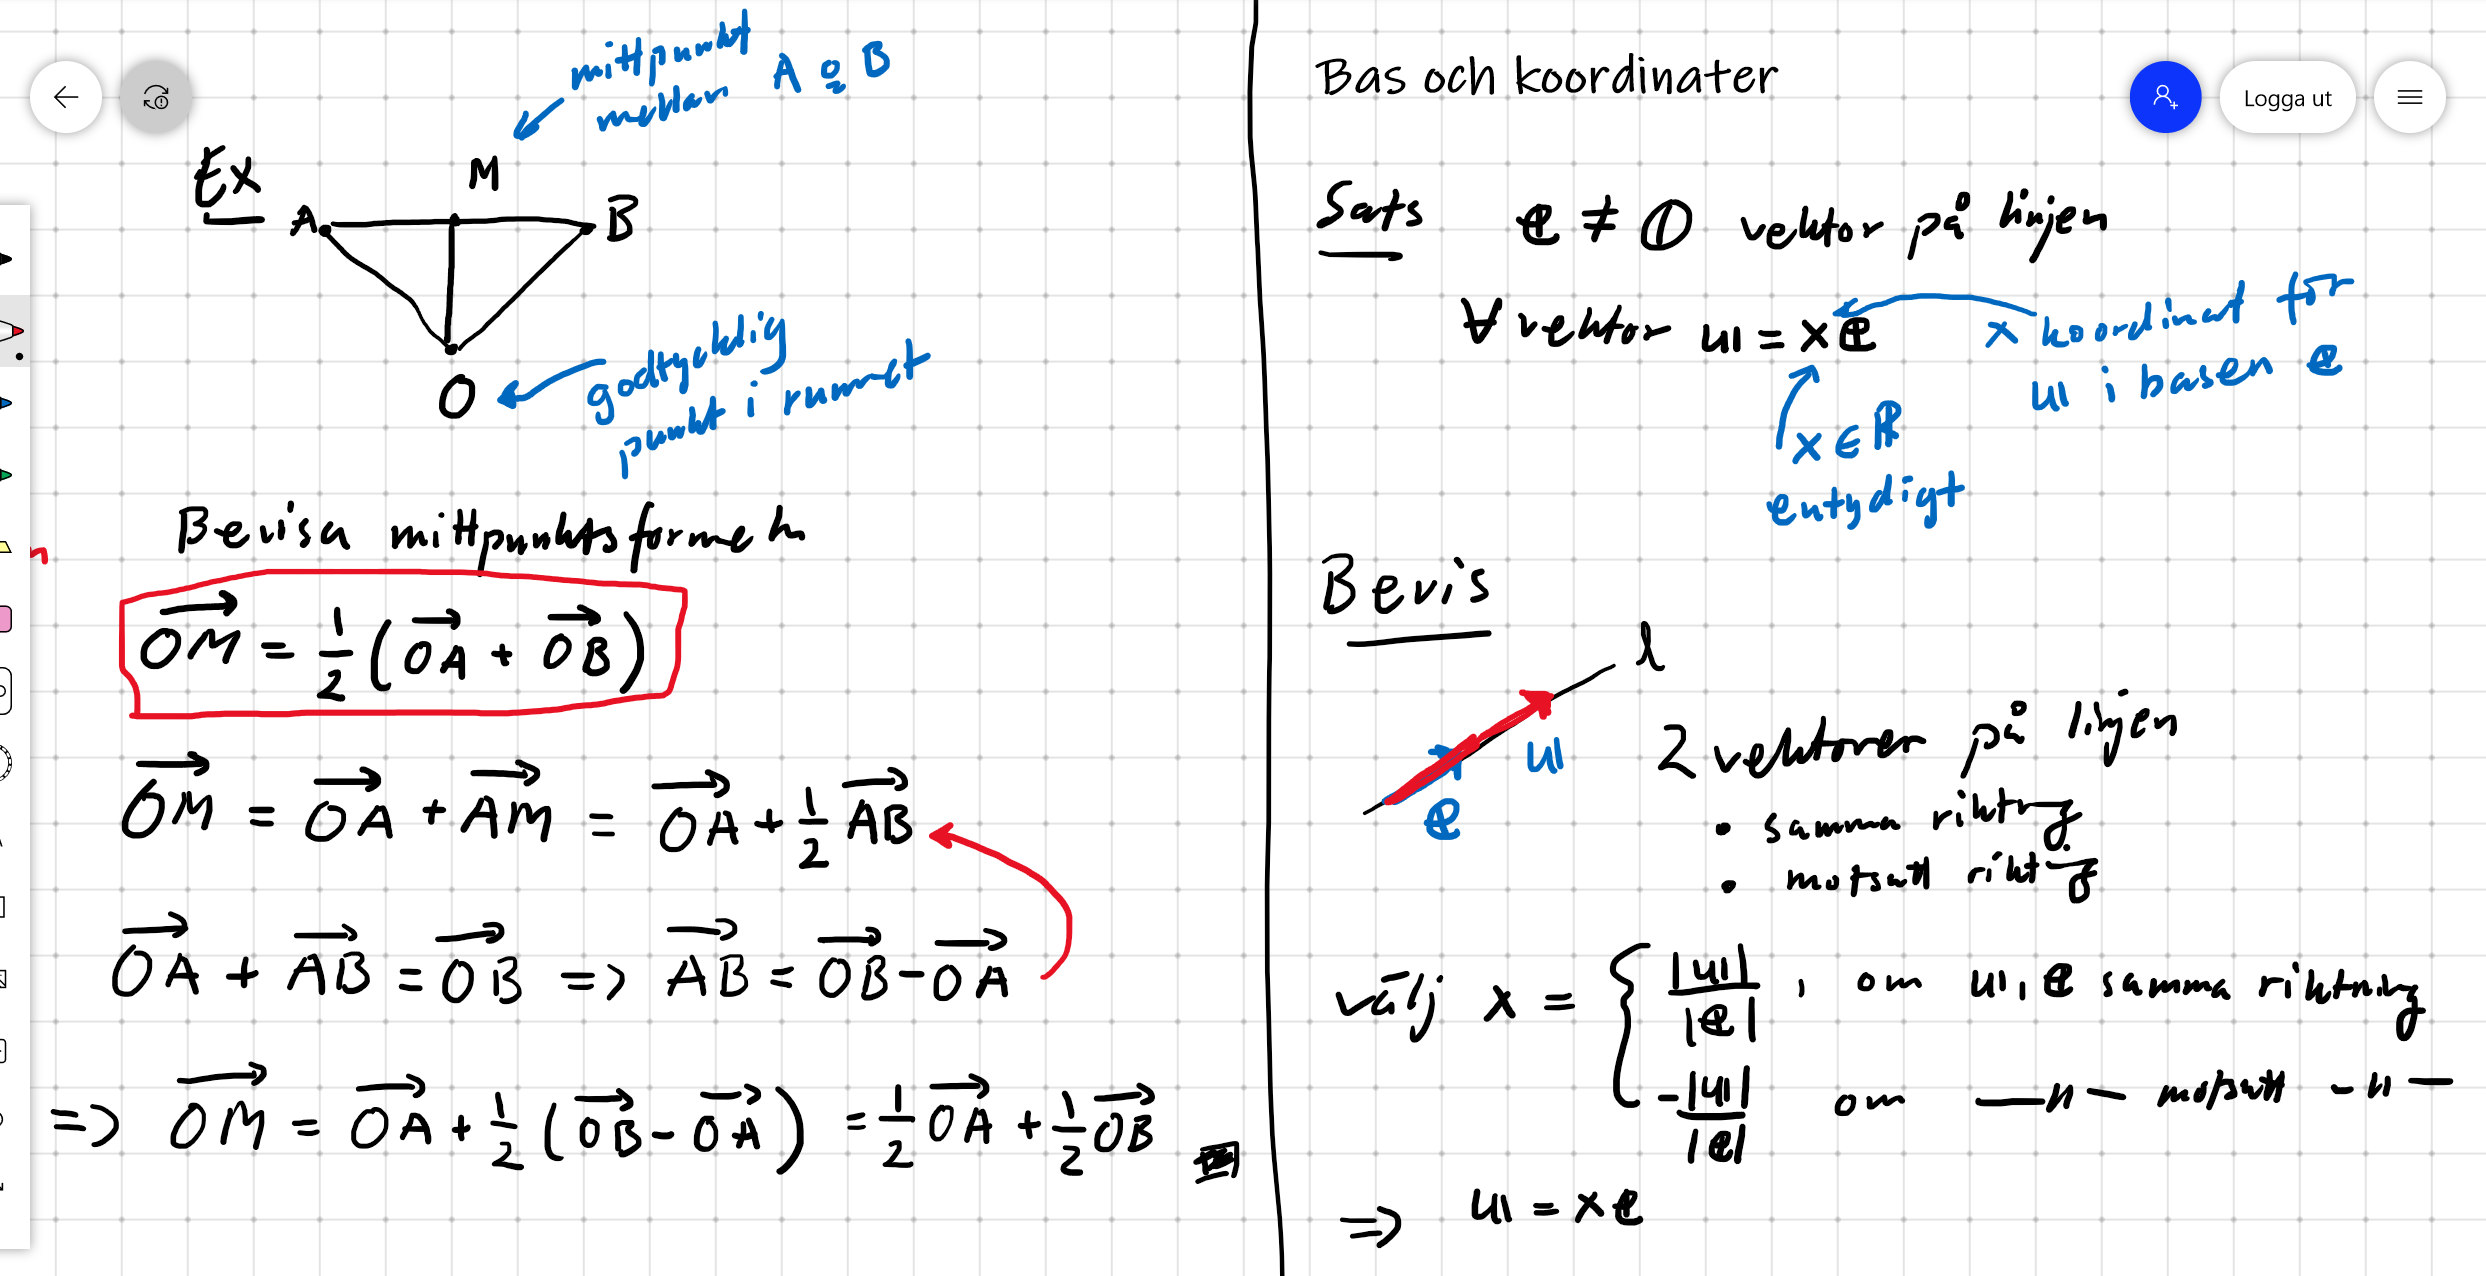 mittpunkt
mellan A o B
Ex
M
A
B
O
godtycklig
punkt i rummet
Bevisa mittpunktsformeln
OM = 1/2 (OA + OB)
OM = OA + AM = OA + 1/2 AB
OA + AB = OB => AB = OB - OA
=> OM = OA + 1/2 (OB - OA) = 1/2 OA + 1/2 OB
Bas och koordinater
Logga ut
Sats e ≠ 0 vektor på linjen
∀ vektor u = xe
x koordinat för
u i basen e
x ∈ R
entydigt
Bevis
l
u
e
2 vektorer på linjen
• samma riktng
• motsatt riktng
välj x = { |u| / |e| , om u, e samma riktning
-|u| / |e| om —"— motsatt -"—
=> u = xe